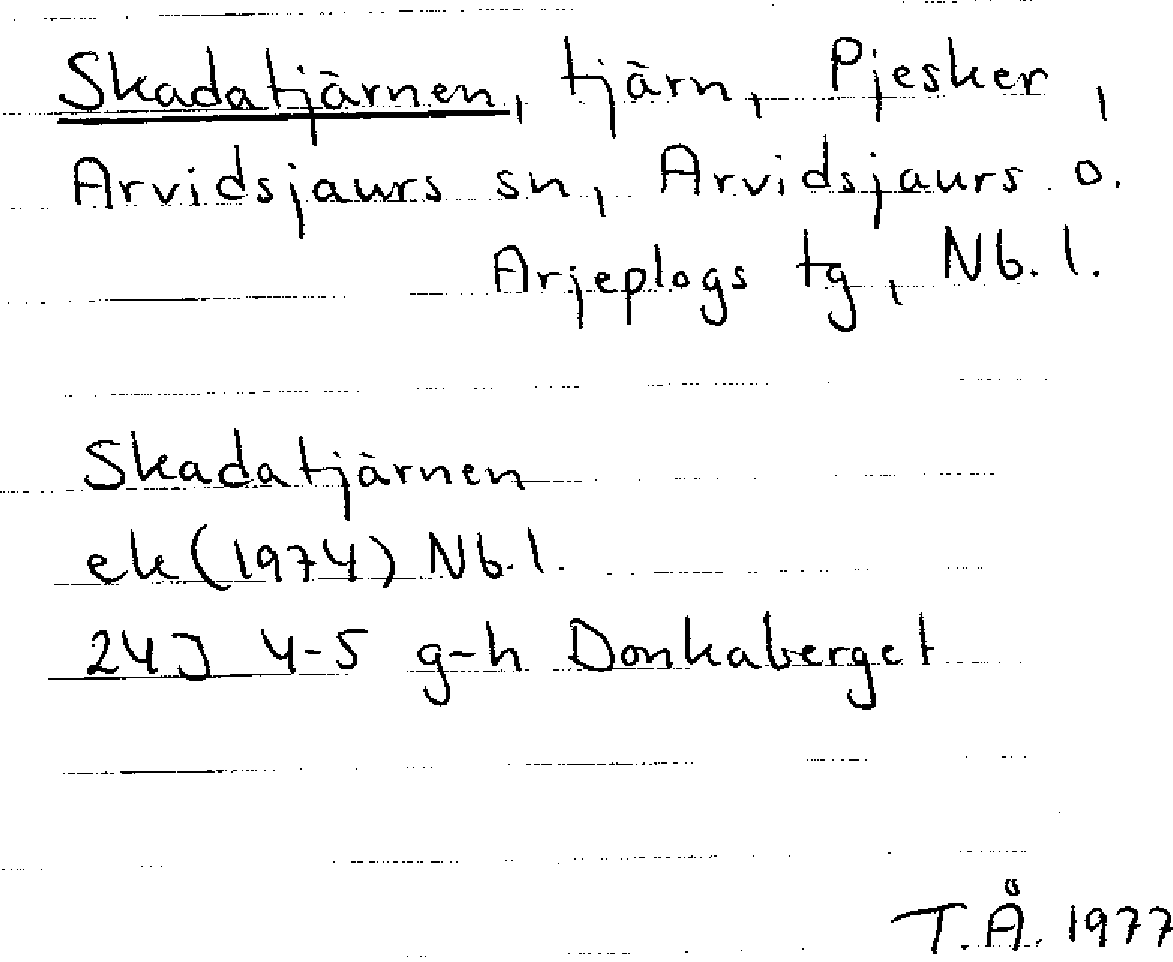 Skadatjärnen, tjärn, Pjesker,
Arvidsjaurs sn, Arvidsjaurs o.
Arjeplogs tg, Nb. l.
Skadatjärnen
ek (1974) Nb. l.
24J 4-5 g-h Donkaberget
T.Å. 1977